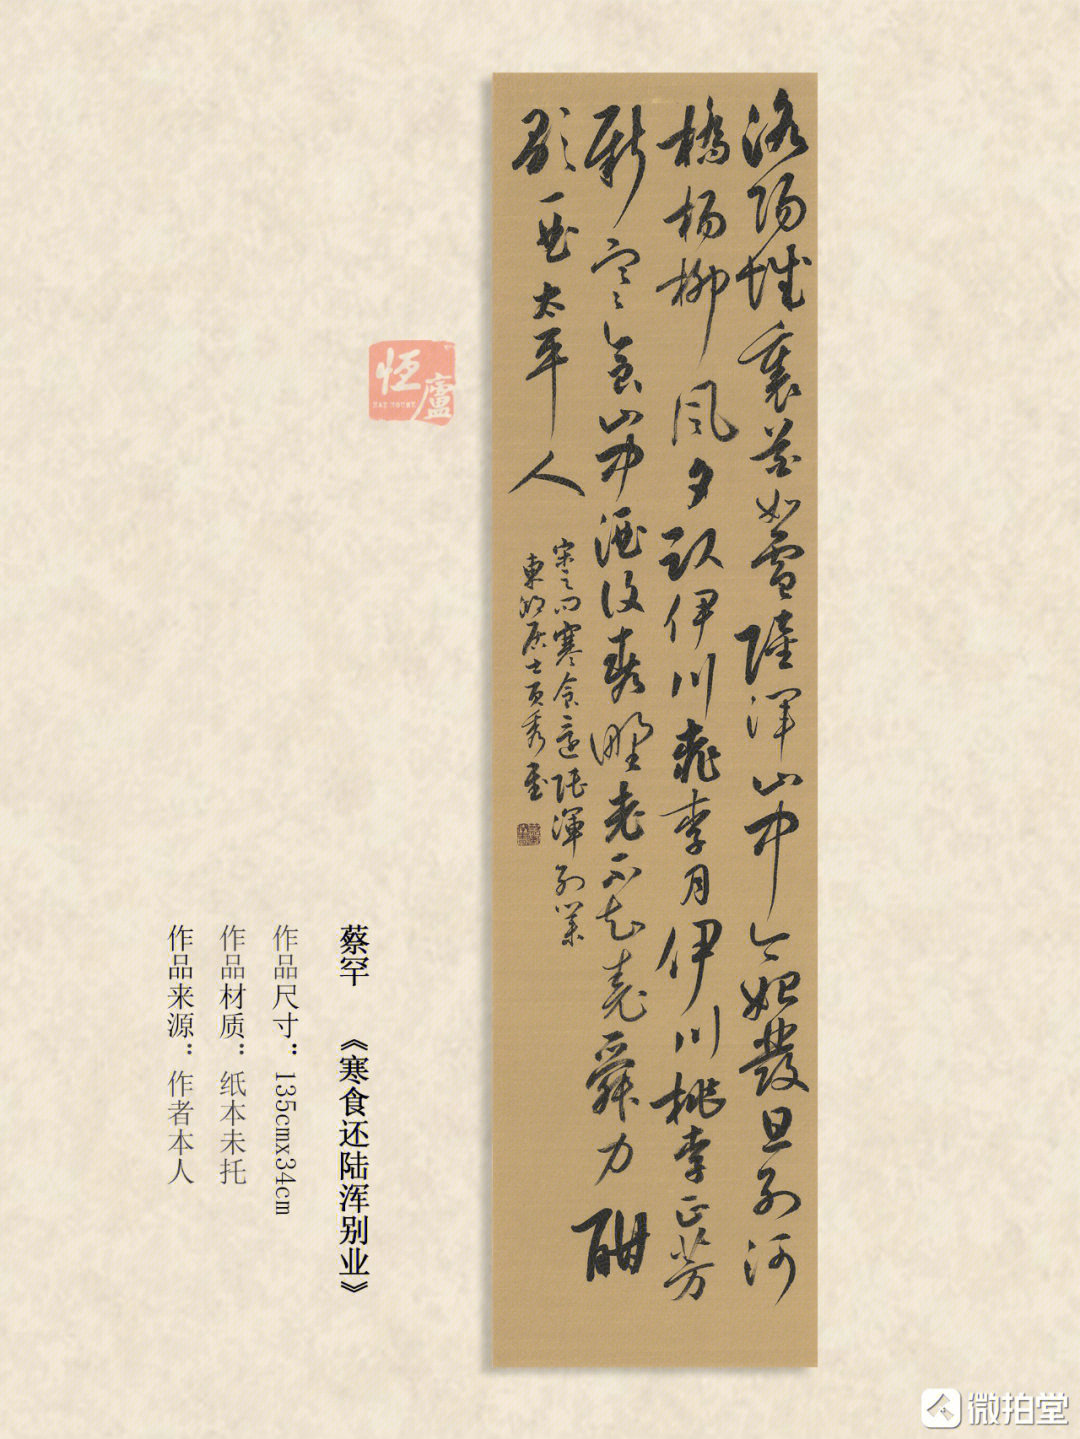 洛陽城裏花如雪陸渾山中今始發旦别河
橋楊柳風夕卧伊川桃李月伊川桃李正芳
新寒食山中酒復春野老不知堯舜力酣
歌一曲太平人
宋之问寒食還陸渾别業
居士
恒廬
蔡罕 《寒食还陆浑别业》
作品尺寸：135cmx34cm
作品材质：纸本未托
作品来源：作者本人
微拍堂